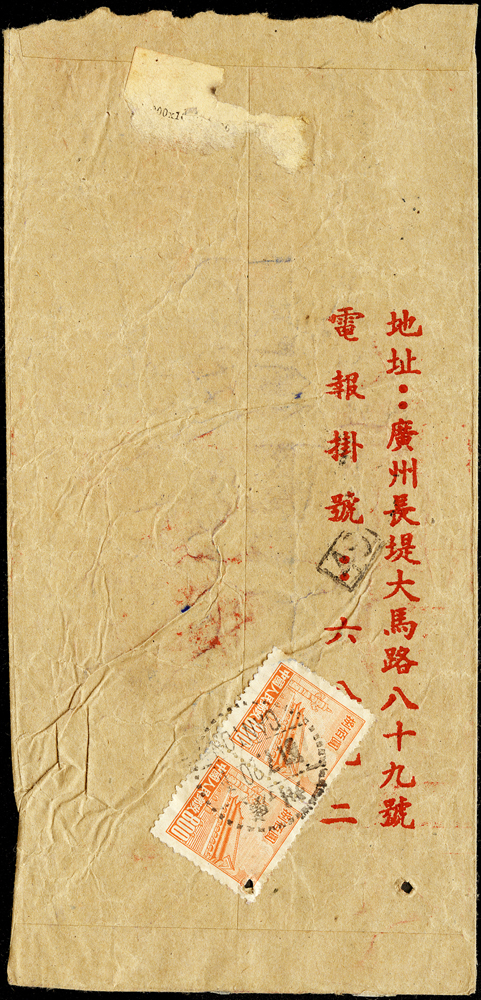 地址：廣州長堤大馬路八十九號
電報掛號：六八二
捌佰圓
中國人民郵政
捌佰圓
中國人民郵政
800